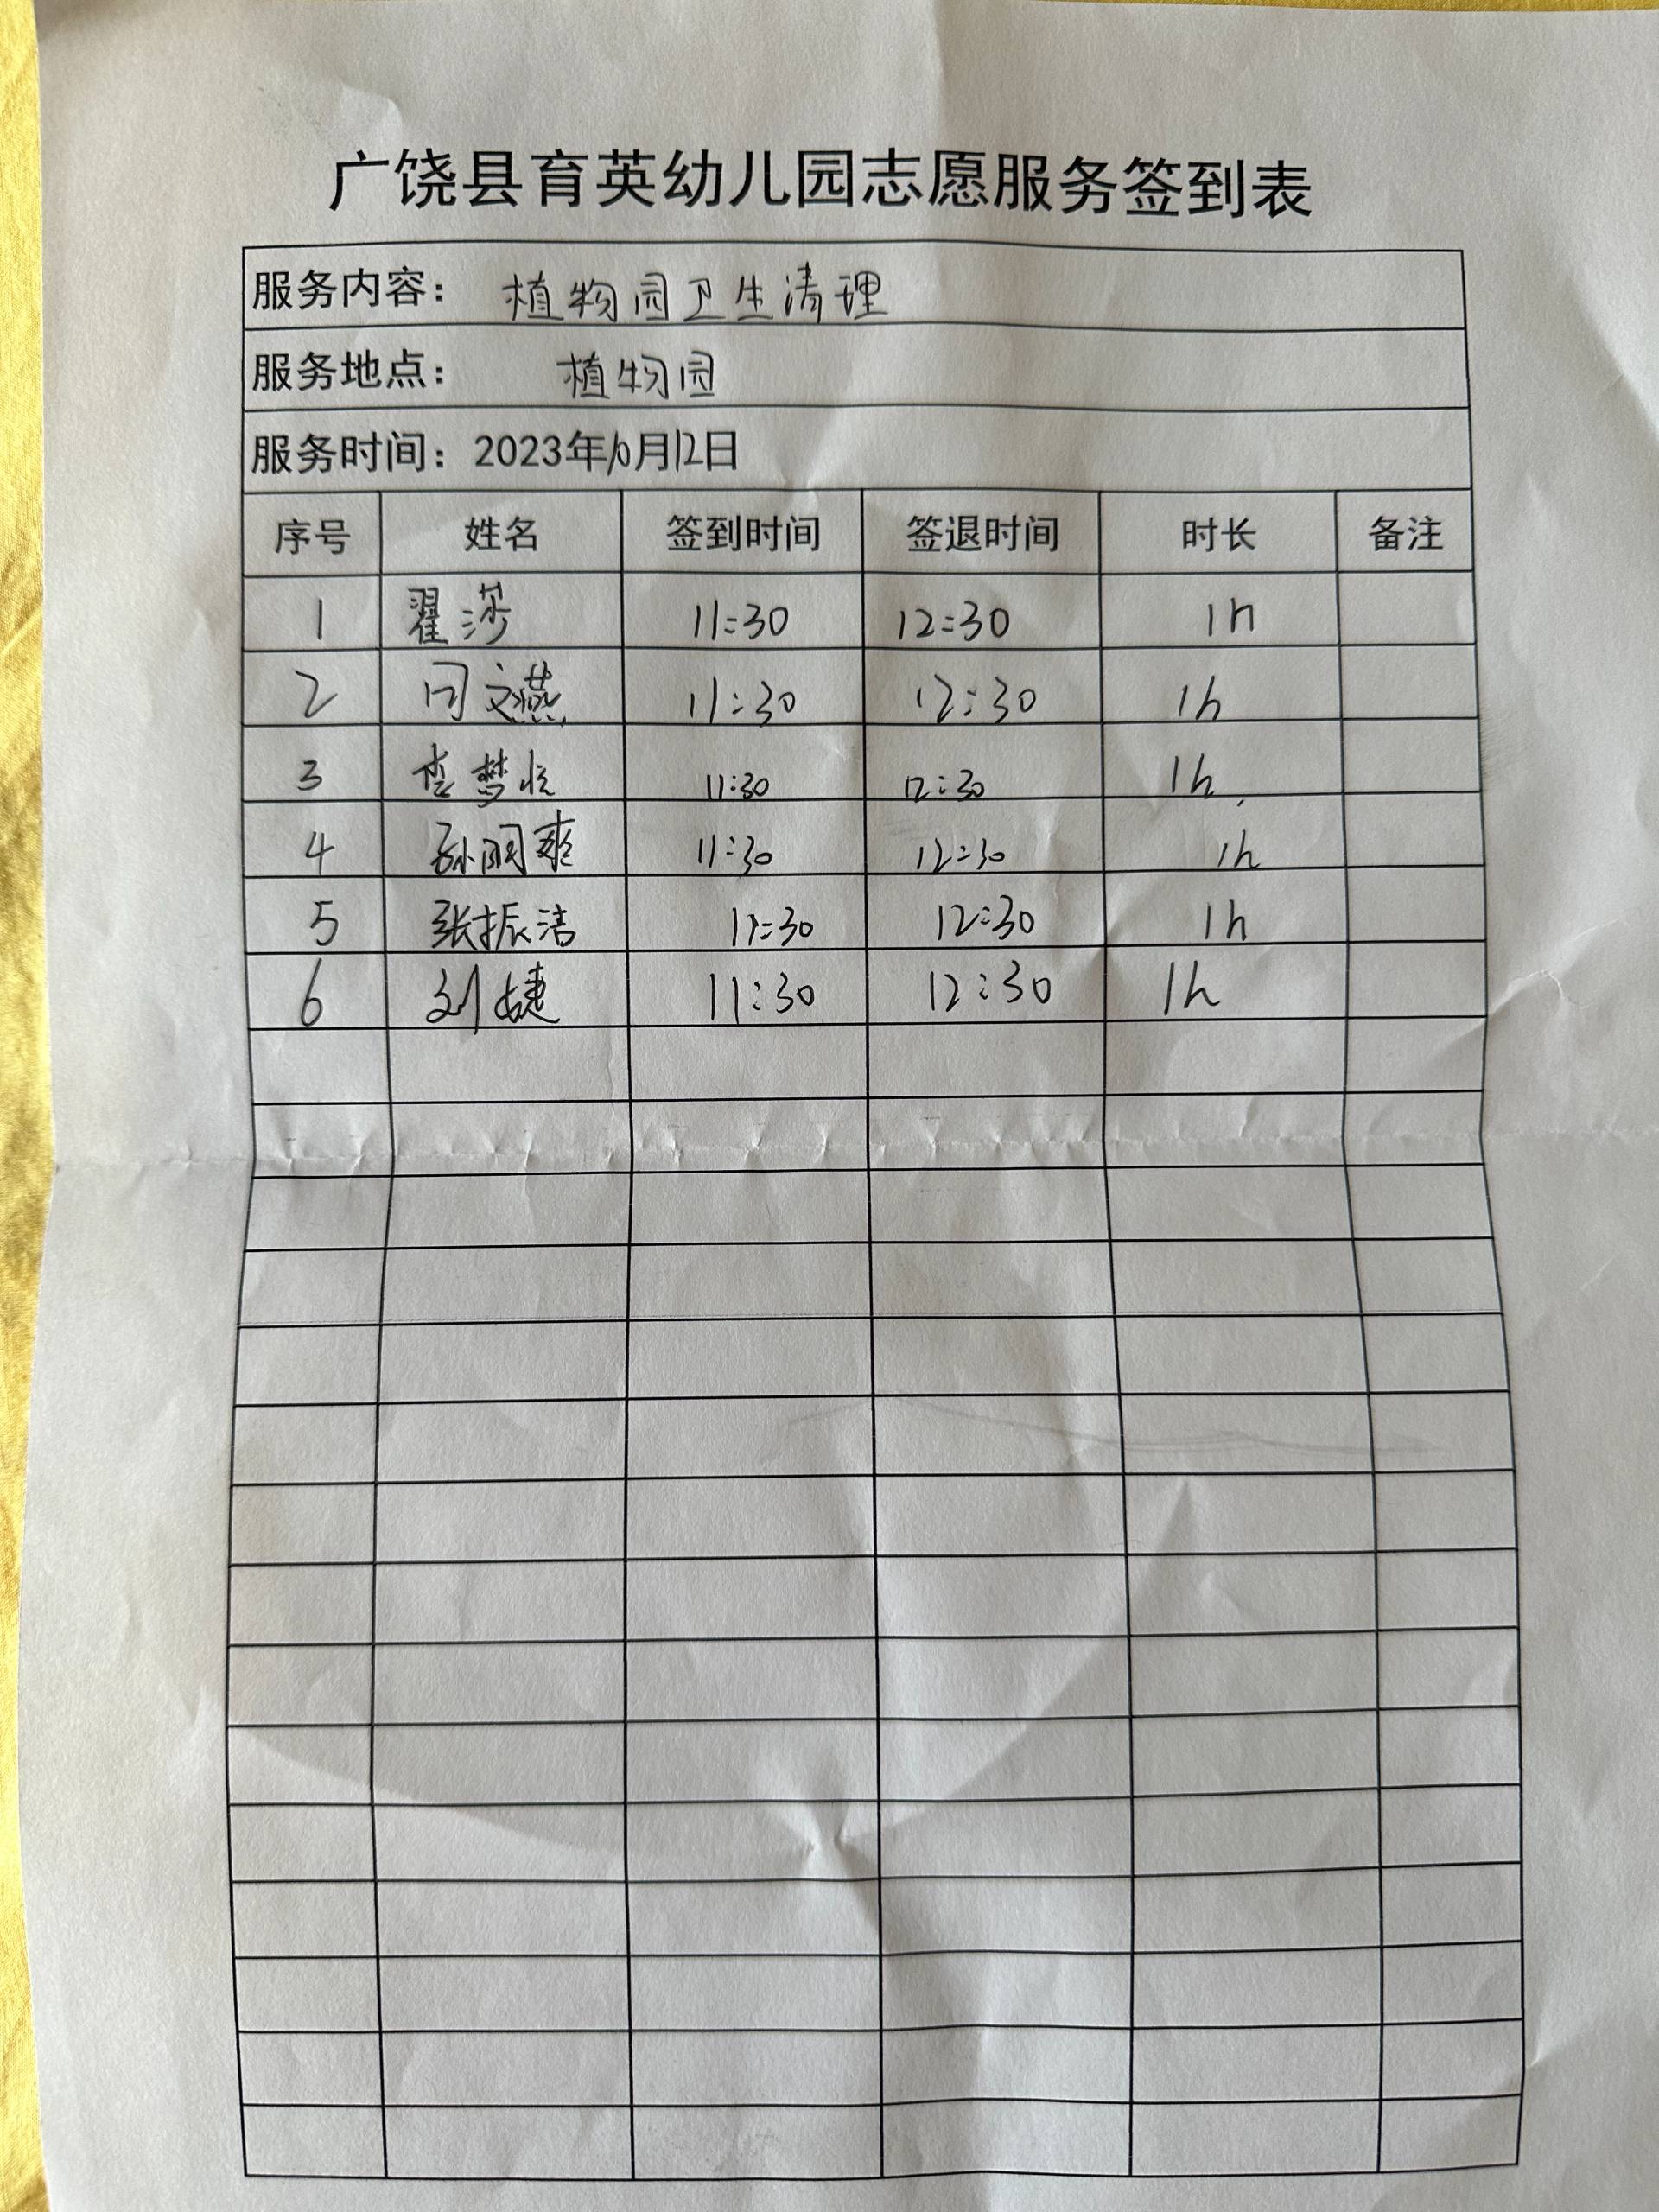 广饶县育英幼儿园志愿服务签到表
服务内容： 植物园卫生清理
服务地点： 植物园
服务时间：2023年10月12日
序号 姓名 签到时间 签退时间 时长 备注
1 翟莎 11:30 12:30 1h
2 闫文燕 11:30 12:30 1h
3 李梦 11:30 12:30 1h
4 孙明爽 11:30 12:30 1h
5 张振洁 11:30 12:30 1h
6 刘婕 11:30 12:30 1h